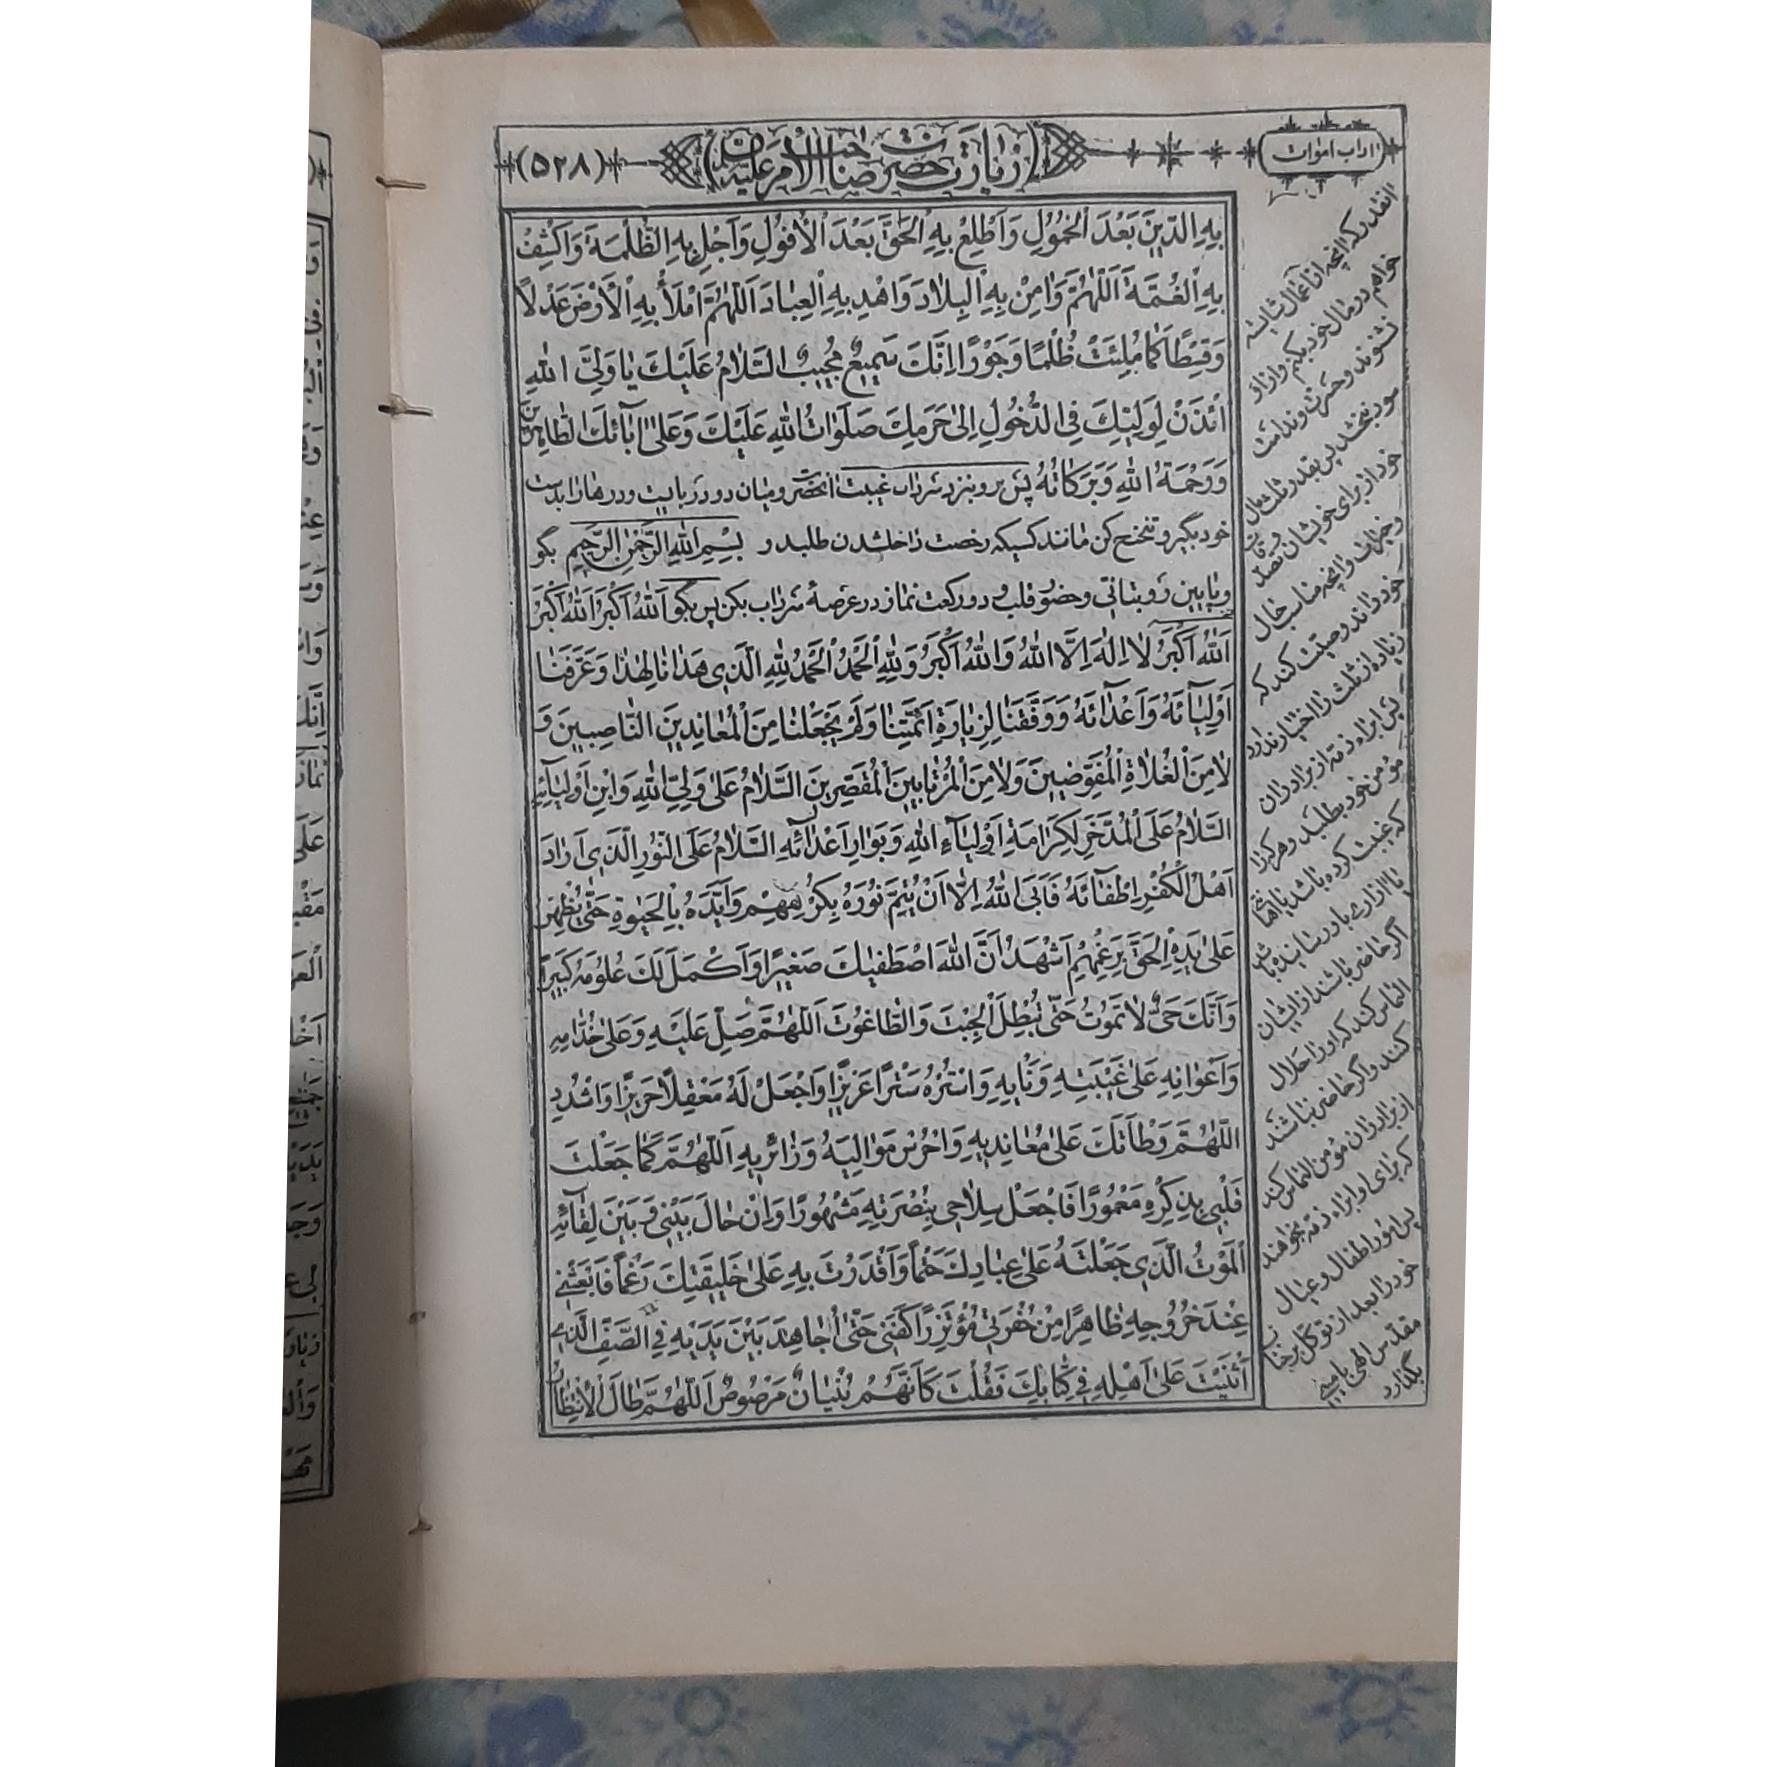 آداب اموات
زیارت حضرت صاحب الامر علیه السلام
(۵۲۸)
بِهِ الدّینَ بَعْدَ الْخُمُولِ وَاَطْلِعْ بِهِ الْحَقَّ بَعْدَ الْاُفُولِ وَاَجْلِ بِهِ الظُّلْمَةَ وَاکْشِفْ
بِهِ الْغُمَّةَ اَللّهُمَّ وَامِنْ بِهِ الْبِلادَ وَاهْدِ بِهِ الْعِبادَ اَللّهُمَّ امْلَأْ بِهِ الْاَرْضَ عَدْلاً
وَقِسْطًا کَما مُلِئَتْ ظُلْمًا وَجَوْرًا اِنَّکَ سَمیعٌ مُجیبٌ السَّلامُ عَلَیْکَ یا وَلِیَّ اللهِ
ائْذَنْ لِوَلِیِّکَ فِی الدُّخُولِ اِلی حَرَمِکَ صَلَواتُ اللهِ عَلَیْکَ وَعَلی آبائِکَ الطّاهِرینَ
وَرَحْمَةُ اللهِ وَبَرَکاتُهُ پس برو بنزد سرداب غیبت آنحضرت و میان دو در بایست و در ها را بدست
خود بگیر و تنحنح کن مانند کسیکه رخصت داخل شدن طلبد و بِسْمِ اللهِ الرَّحْمنِ الرَّحیمِ بگو
و پایین رو بتأنی و حضور قلب و دو رکعت نماز در عرصهٔ سرداب بکن پس بگو اَللهُ اَکْبَرُ اَللهُ اَکْبَرُ
اَللهُ اَکْبَرُ لا اِلهَ اِلَّا اللهُ وَاللهُ اَکْبَرُ وَلِلّهِ الْحَمْدُ اَلْحَمْدُ لِلّهِ الَّذی هَدانا لِهذا وَعَرَّفَنا
اَوْلِیآئَهُ وَاَعْدآئَهُ وَوَفَّقَنا لِزِیارَةِ اَئِمَّتِنا وَلَمْ یَجْعَلْنا مِنَ الْمُعانِدینَ النّاصِبینَ وَ
لا مِنَ الْغُلاةِ الْمُفَوِّضینَ وَلا مِنَ الْمُرْتابینَ الْمُقَصِّرینَ السَّلامُ عَلی وَلِیِّ اللهِ وَابْنِ اَوْلِیآئِهِ
السَّلامُ عَلَی الْمُدَّخَرِ لِکَرامَةِ اَوْلِیآءِ اللهِ وَبَوارِ اَعْدآئِهِ السَّلامُ عَلَی النُّورِ الَّذی اَرادَ
اَهْلُ الْکُفْرِ اِطْفآئَهُ فَاَبَی اللهُ اِلّا اَنْ یُتِمَّ نُورَهُ بِکُرْهِهِمْ وَاَیَّدَهُ بِالْحَیوةِ حَتّی یُظْهِرَ
عَلی یَدِهِ الْحَقَّ بِرَغْمِهِمْ اَشْهَدُ اَنَّ اللهَ اصْطَفیکَ صَغیرًا وَاَکْمَلَ لَکَ عُلُومَهُ کَبیرًا
وَاَنَّکَ حَیٌّ لا تَمُوتُ حَتّی تُبْطِلَ الْجِبْتَ وَالطّاغُوتَ اَللّهُمَّ صَلِّ عَلَیْهِ وَعَلی خُدّامِهِ
وَاَعْوانِهِ عَلی غَیْبَتِهِ وَنَأْیِهِ وَاسْتُرْهُ سَتْرًا عَزیزًا وَاجْعَلْ لَهُ مَعْقِلاً حَریزًا وَاشْدُدِ
اللّهُمَّ وَطْأَتَکَ عَلی مُعانِدیهِ وَاحْرُسْ مَوالِیَهُ وَزائِریهِ اَللّهُمَّ کَما جَعَلْتَ
قَلْبی بِذِکْرِهِ مَعْمُورًا فَاجْعَلْ سِلاحی بِنُصْرَتِهِ مَشْهُورًا وَاِنْ حالَ بَیْنی وَبَیْنَ لِقآئِهِ
الْمَوْتُ الَّذی جَعَلْتَهُ عَلی عِبادِکَ حَتْمًا وَاَقْدَرْتَ بِهِ عَلی خَلیقَتِکَ رَغْمًا فَابْعَثْنی
عِنْدَ خُرُوجِهِ ظاهِرًا مِنْ حُفْرَتی مُؤْتَزِرًا کَفَنی حَتّی اُجاهِدَ بَیْنَ یَدَیْهِ فِی الصَّفِّ الَّذی
اَثْنَیْتَ عَلی اَهْلِهِ فی کِتابِکَ فَقُلْتَ کَاَنَّهُمْ بُنْیانٌ مَرْصُوصٌ اَللّهُمَّ طالَ الْاِنْتِظارُ
آنقدر که آنچه از اعمال شایسته
خواهم در مال خود بکنم و از او
نشنوند و حسرت و ندامت
سود نبخشد پس بقدر ثلث مال
خود از برای خویشان و تصدق
و خیرات و آنچه مناسب حال
خود داند وصیت کند که
زیاده از ثلث را اختیار ندارد
پس ابراء ذمه از برادران
مؤمن خود بطلبد و هر که را
که غیبت کرده باشد یا اهانتی
یا آزاری باو رسانیده باشد
اگر حاضر باشند از ایشان
التماس کند که او را حلال
کنند و اگر حاضر نباشند
از برادران مؤمن التماس کند
که برای او ابراء ذمه بخواهند
پس امور اطفال و عیال
خود را بعد از توکل بر جناب
مقدس الهی بامینی
بگذارد